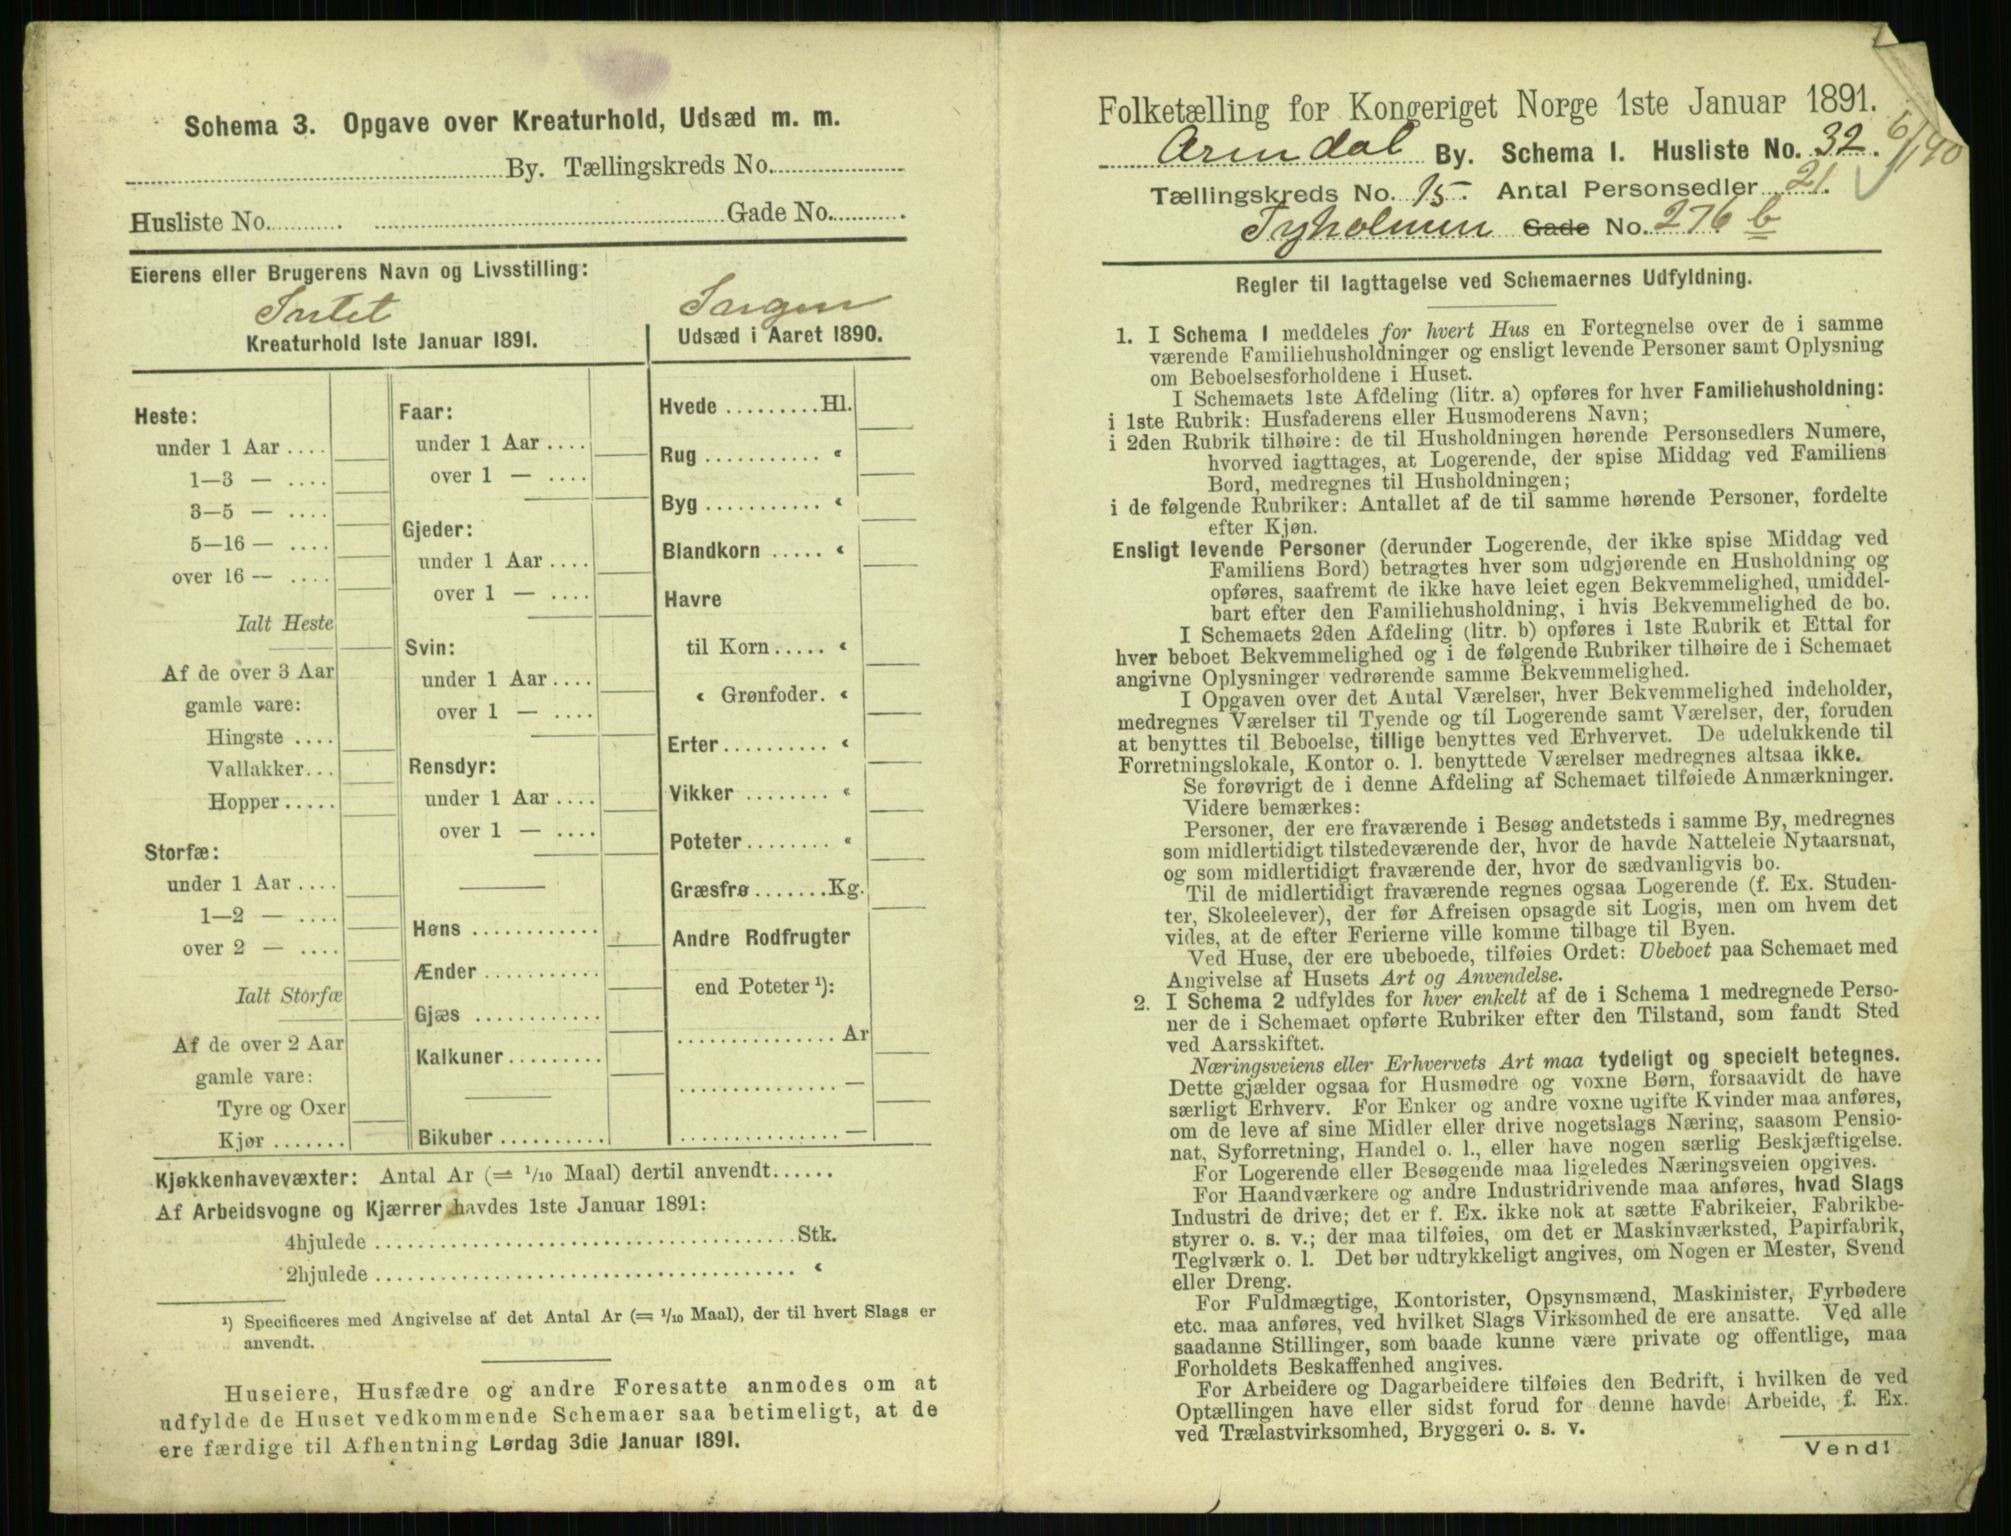 Schema 3. Opgave over Kreaturhold, Udsæd m. m.
By. Tællingskreds No.
Husliste No. Gade No.
Eierens eller Brugerens Navn og Livsstilling:
Intet
Kreaturhold 1ste Januar 1891.
Ingen
Udsæd i Aaret 1890.
Heste:
under 1 Aar ....
1—3 — ....
3—5 — ....
5—16 — ....
over 16 — ....
Ialt Heste
Af de over 3 Aar
gamle vare:
Hingste ....
Vallakker...
Hopper .....
Storfæ:
under 1 Aar ....
1—2 — ....
over 2 — ....
Ialt Storfæ
Af de over 2 Aar
gamle vare:
Tyre og Oxer
Kjør .......
Faar:
under 1 Aar ....
over 1 — ....
Gjeder:
under 1 Aar ....
over 1 — ....
Svin:
under 1 Aar ....
over 1 — ....
Rensdyr:
under 1 Aar ....
over 1 — ....
Høns ............
Ænder ...........
Gjæs ............
Kalkuner .........
Bikuber ..........
Hvede .........Hl.
Rug ........... «
Byg ........... «
Blandkorn ..... «
Havre
til Korn ..... «
« Grønfoder. «
Erter .......... «
Vikker ........ «
Poteter ........ «
Græsfrø .......Kg.
Andre Rodfrugter
end Poteter ¹):
............... Ar
............... —
............... —
Kjøkkenhavevæxter: Antal Ar (= 1/10 Maal) dertil anvendt......
Af Arbeidsvogne og Kjærrer havdes 1ste Januar 1891:
4hjulede ........................................ Stk.
2hjulede ........................................ «
¹) Specificeres med Angivelse af det Antal Ar (= 1/10 Maal), der til hvert Slags er
anvendt.
Huseiere, Husfædre og andre Foresatte anmodes om at
udfylde de Huset vedkommende Schemaer saa betimeligt, at de
ere færdige til Afhentning Lørdag 3die Januar 1891.
Folketælling for Kongeriget Norge 1ste Januar 1891.
Arendal By. Schema I. Husliste No. 32.
6/140
Tællingskreds No. 15. Antal Personsedler 21.
Tyholmen Gade No. 276 b
Regler til Iagttagelse ved Schemaernes Udfyldning.
1. I Schema 1 meddeles for hvert Hus en Fortegnelse over de i samme
værende Familiehusholdninger og ensligt levende Personer samt Oplysning
om Beboelsesforholdene i Huset.
I Schemaets 1ste Afdeling (litr. a) opføres for hver Familiehusholdning:
i 1ste Rubrik: Husfaderens eller Husmoderens Navn;
i 2den Rubrik tilhøire: de til Husholdningen hørende Personsedlers Numere,
hvorved iagttages, at Logerende, der spise Middag ved Familiens
Bord, medregnes til Husholdningen;
i de følgende Rubriker: Antallet af de til samme hørende Personer, fordelte
efter Kjøn.
Ensligt levende Personer (derunder Logerende, der ikke spise Middag ved
Familiens Bord) betragtes hver som udgjørende en Husholdning og
opføres, saafremt de ikke have leiet egen Bekvemmelighed, umiddel-
bart efter den Familiehusholdning, i hvis Bekvemmelighed de bo.
I Schemaets 2den Afdeling (litr. b) opføres i 1ste Rubrik et Ettal for
hver beboet Bekvemmelighed og i de følgende Rubriker tilhøire de i Schemaet
angivne Oplysninger vedrørende samme Bekvemmelighed.
I Opgaven over det Antal Værelser, hver Bekvemmelighed indeholder,
medregnes Værelser til Tyende og til Logerende samt Værelser, der, foruden
at benyttes til Beboelse, tillige benyttes ved Erhvervet. De udelukkende til
Forretningslokale, Kontor o. l. benyttede Værelser medregnes altsaa ikke.
Se forøvrigt de i denne Afdeling af Schemaet tilføiede Anmærkninger.
Videre bemærkes:
Personer, der ere fraværende i Besøg andetsteds i samme By, medregnes
som midlertidigt tilstedeværende der, hvor de havde Natteleie Nytaarsnat,
og som midlertidigt fraværende der, hvor de sædvanligvis bo.
Til de midlertidigt fraværende regnes ogsaa Logerende (f. Ex. Studen-
ter, Skoleelever), der før Afreisen opsagde sit Logis, men om hvem det
vides, at de efter Ferierne ville komme tilbage til Byen.
Ved Huse, der ere ubeboede, tilføies Ordet: Ubeboet paa Schemaet med
Angivelse af Husets Art og Anvendelse.
2. I Schema 2 udfyldes for hver enkelt af de i Schema 1 medregnede Perso-
ner de i Schemaet opførte Rubriker efter den Tilstand, som fandt Sted
ved Aarsskiftet.
Næringsveiens eller Erhvervets Art maa tydeligt og specielt betegnes.
Dette gjælder ogsaa for Husmødre og voxne Børn, forsaavidt de have
særligt Erhverv. For Enker og andre voxne ugifte Kvinder maa anføres,
om de leve af sine Midler eller drive nogetslags Næring, saasom Pensio-
nat, Syforretning, Handel o. l., eller have nogen særlig Beskjæftigelse.
For Logerende eller Besøgende maa ligeledes Næringsveien opgives.
For Haandværkere og andre Industridrivende maa anføres, hvad Slags
Industri de drive; det er f. Ex. ikke nok at sætte Fabrikeier, Fabrikbe-
styrer o. s. v.; der maa tilføies, om det er Maskinværksted, Papirfabrik,
Teglværk o. l. Det bør udtrykkeligt angives, om Nogen er Mester, Svend
eller Dreng.
For Fuldmægtige, Kontorister, Opsynsmænd, Maskinister, Fyrbødere
etc. maa anføres, ved hvilket Slags Virksomhed de ere ansatte. Ved alle
saadanne Stillinger, som baade kunne være private og offentlige, maa
Forholdets Beskaffenhed angives.
For Arbeidere og Dagarbeidere tilføies den Bedrift, i hvilken de ved
Optællingen have eller sidst forud for denne havde Arbeide, f. Ex.
ved Trælastvirksomhed, Bryggeri o. s. v.
Vend!